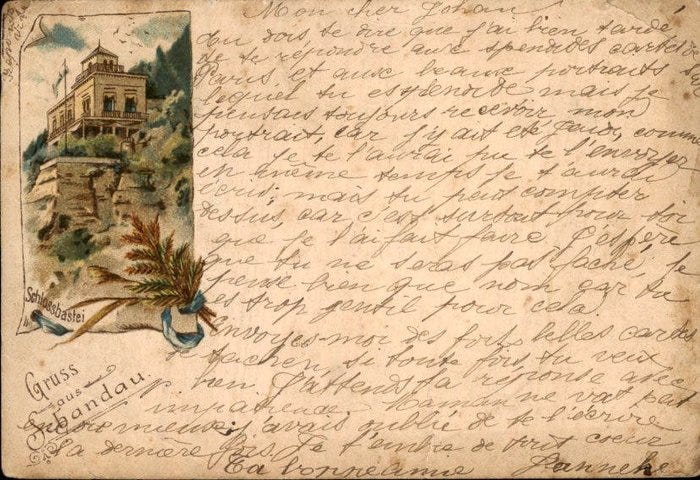 Mon cher Johan
Tu dois te dire que j'ai bien tardé
de te répondre aux splendides cartes de
Paris, et aux beaux portraits
lequel tu es splendide mais je
pensais toujours recevoir mon
portrait, car j'y ait été jeudi, comme
cela je te l'aurai pu te l'envoyer
en même temps je t'aurai
écris mais tu peut compter
dessus, car c'est surtout pour toi
que je l'ai fait faire. J'espère
que tu ne seras pas fâché, je
pense bien que non car tu
es trop gentil pour cela.
Envoyes-moi des fort belles cartes
si toute fois tu veux
bien. J'attends ta réponse avec
impatience. Maman ne vat pas
encore mieux, j'avais oublié de te l'écrire
la dernière fois. Je t'embre de tout coeur
Ta bonne amie Janneke
Schlossbastei
Gruss
aus
Schandau.